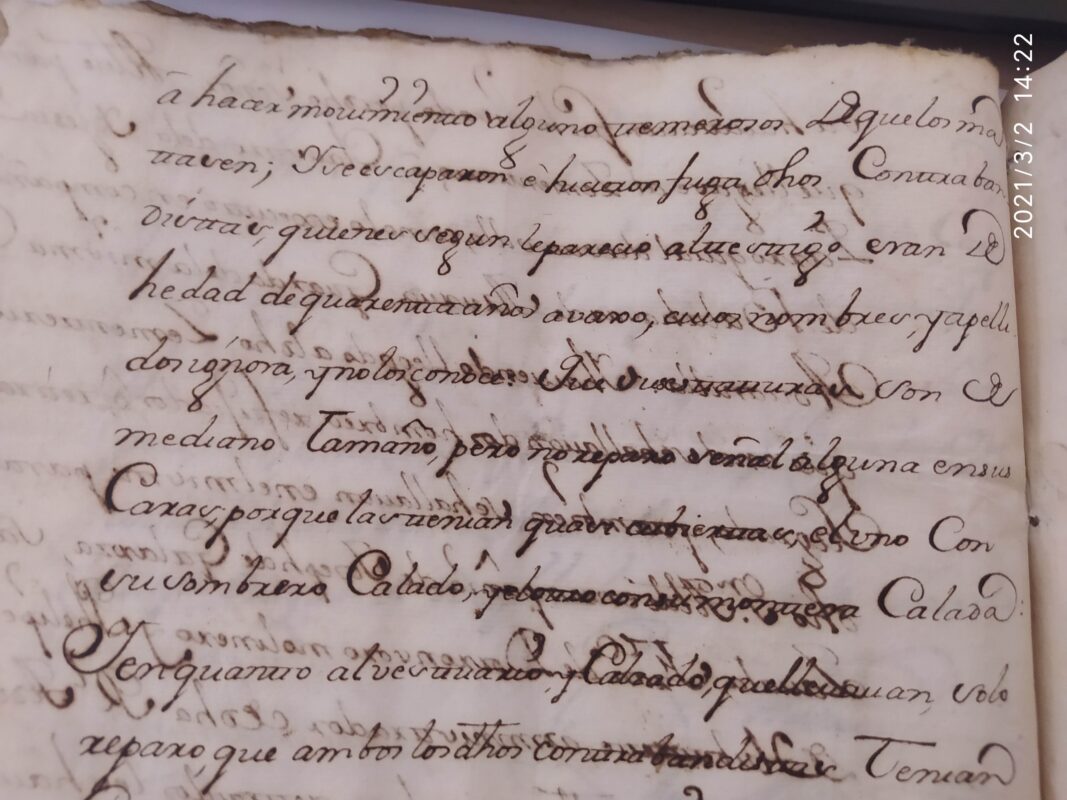 â hacer movimiento alguno temerosos De que los ma
tasen; Y se escaparon è hicieron fuga dhos Contraban
distas, quienes segun le parecio al testigo eran De
hedad de quarenta años avaxo, cuios nombres, y apelli
dos ignora, y no los conoce: Que sus estaturas son De
mediano Tamaño, pero no reparo señal alguna en sus
Caras, porque las tenian quasi cubiertas, el uno Con
su sombrero Calado, y el otro con su montera Calada:
Y en quanto al vestuario, y Calzado, que llevavan, solo
reparo, que ambos los dhos contrabandistas Tenian
2021/3/2 14:22